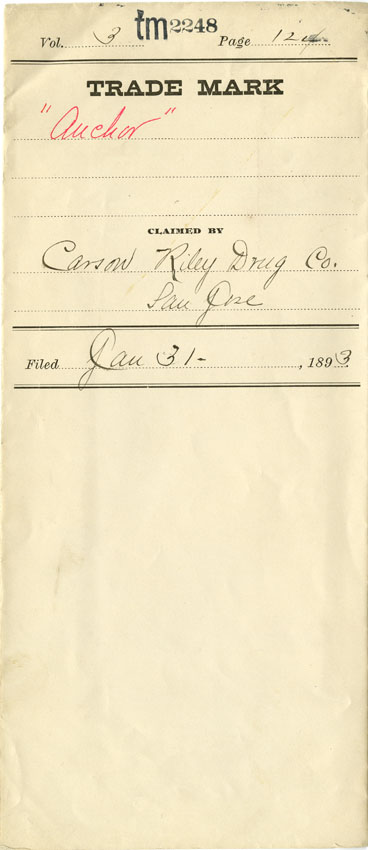 Vol. 3 tm2248 Page 124
TRADE MARK
"Anchor"
CLAIMED BY
Carson Riley Drug Co.
San Jose
Filed Jan 31- , 1893